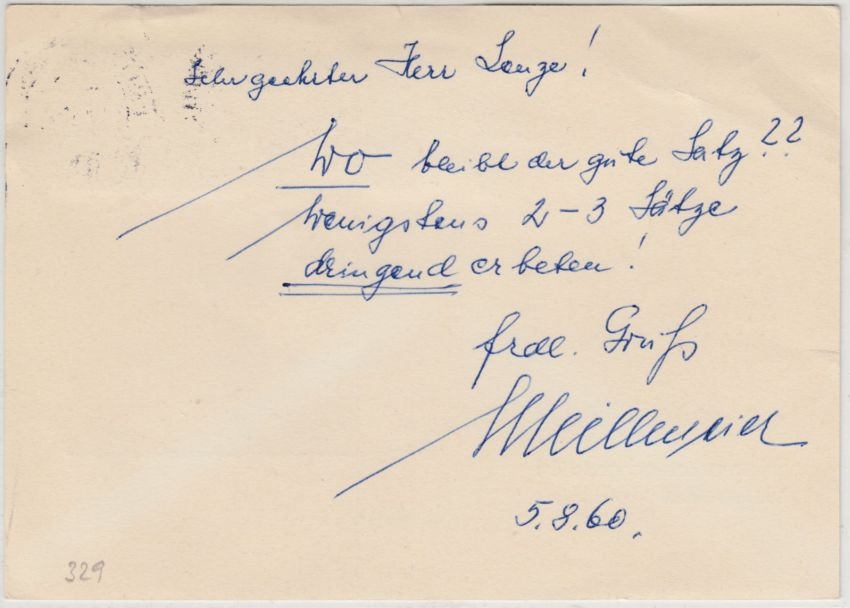 Sehr geehrter Herr Lenze!
Wo bleibt der gute Satz??
Wenigstens 2-3 Sätze
dringend erbeten!
frdl. Gruß
5.8.60.
329